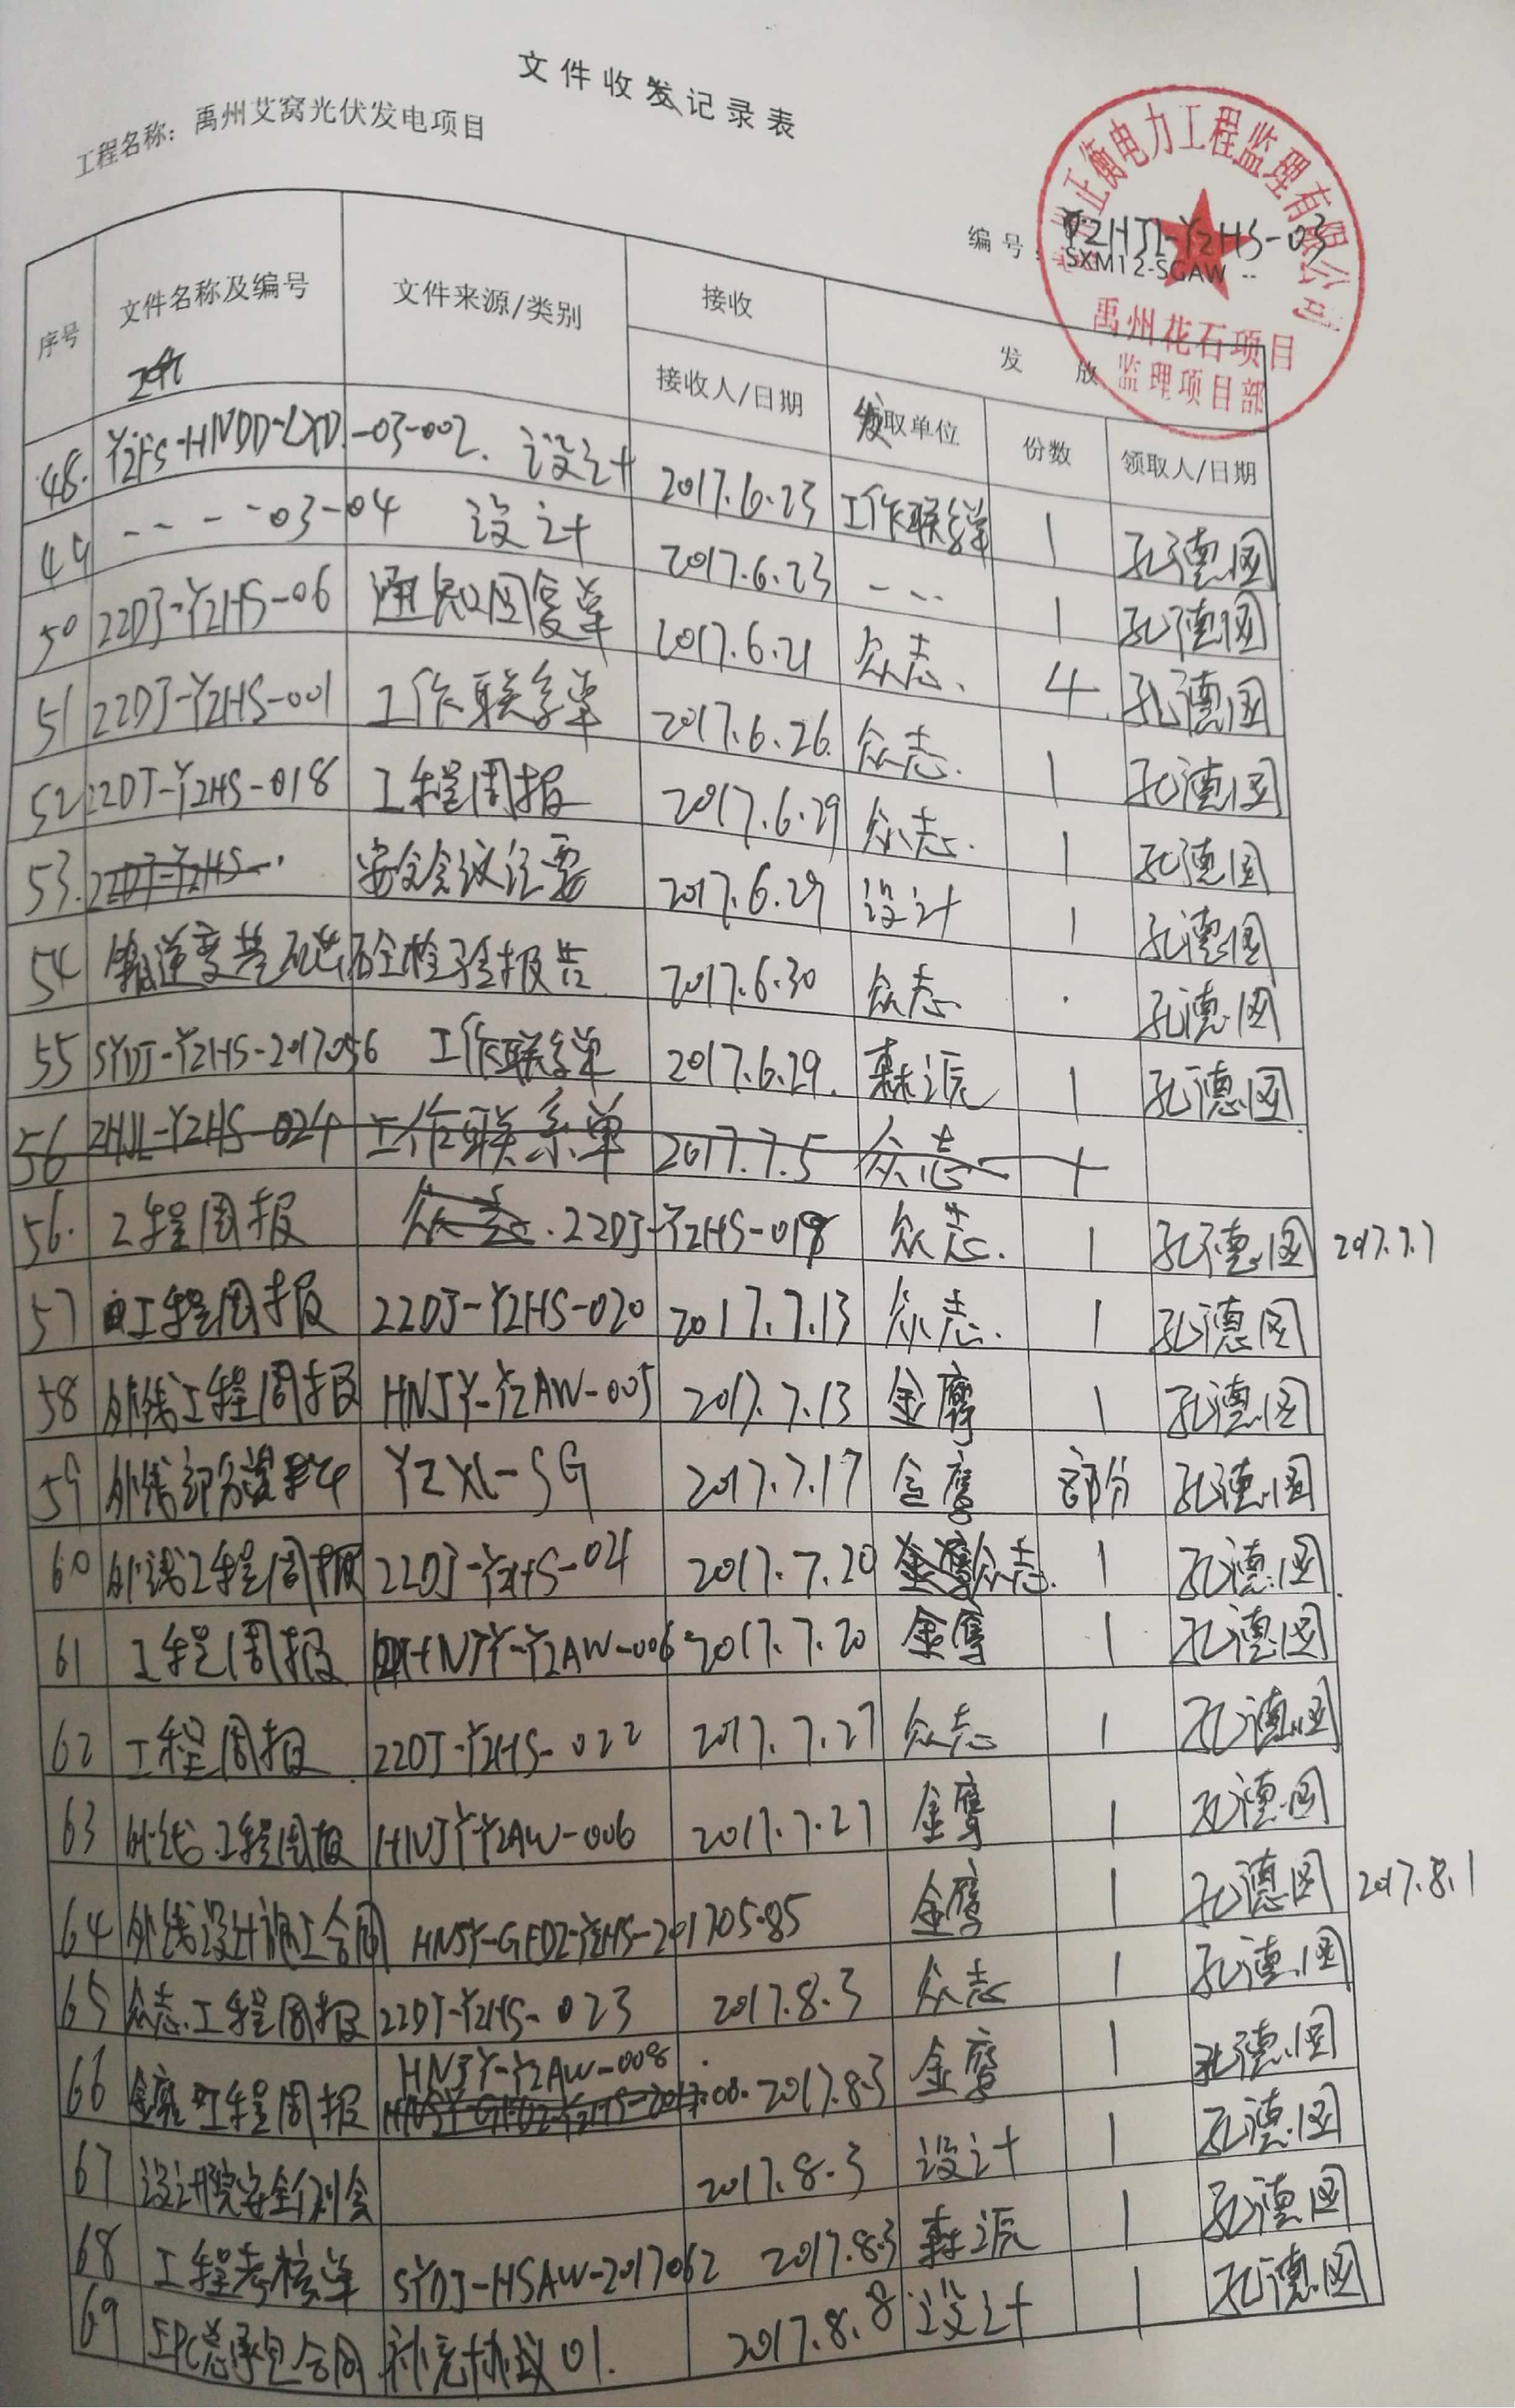 文件收发记录表
工程名称：禹州艾窝光伏发电项目
正衡电力工程监理有限公司
禹州花石项目
监理项目部
编号：YZHJL-YZHS-03
SXM12-SGAW --
序号 文件名称及编号 文件来源/类别 接收 发放
接收人/日期 领取单位 份数 领取人/日期
48. YZFS-HNDD-LXD-03-002. 设计 2017.6.23 工作联系单 1 孔德图
49 ---- 03-04 设计 2017.6.23 --- 1 孔德图
50 ZZDJ-YZHS-06 通知回复单 2017.6.21 众志. 4 孔德图
51 ZZDJ-YZHS-001 工作联系单 2017.6.26. 众志. 1 孔德图
52 ZZDJ-YZHS-018 工程周报 2017.6.29 众志. 1 孔德图
53. ZZDJ-YZHS- 安全会议纪要 2017.6.29 设计 1 孔德图
54 检验报告 2017.6.30 众志. 孔德图
55 SYDJ-YZHS-2017056 工作联系单 2017.6.29. 森源 1 孔德图
56 ZHJL-YZHS-024 工作联系单 2017.7.5 众志 1
56. 工程周报 众志. ZZDJ-YZHS-019 众志. 1 孔德图 2017.7.7
57 工程周报 ZZDJ-YZHS-020 2017.7.13 众志. 1 孔德图
58 外线工程周报 HNJY-YZAW-005 2017.7.13 金鹰 1 孔德图
59 外线部分资料 YZXL-SG 2017.7.17 金鹰 部分 孔德图
60 外线工程周报 ZZDJ-YZHS-021 2017.7.20 金鹰 众志. 1 孔德图
61 工程周报 HNJY-YZAW-006 2017.7.20 金鹰 1 孔德图
62 工程周报 ZZDJ-YZHS-022 2017.7.27 众志 1 孔德图
63 外线工程周报 HNJY-YZAW-006 2017.7.27 金鹰 1 孔德图
64 外线设计施工合同 HNSY-GFDZ-YZHS-201705-85 金鹰 1 孔德图 2017.8.1
65 众志.工程周报 ZZDJ-YZHS-023 2017.8.3 众志 1 孔德图
66 金鹰工程周报 HNJY-YZAW-008 2017.8.3 金鹰 1 孔德图
67 设计院安全例会 2017.8.3 设计 1 孔德图
68 工程考核单 SYDJ-HSAW-2017062 2017.8.3 森源 1 孔德图
69 EPC总承包合同 补充协议01. 2017.8.8 设计 1 孔德图